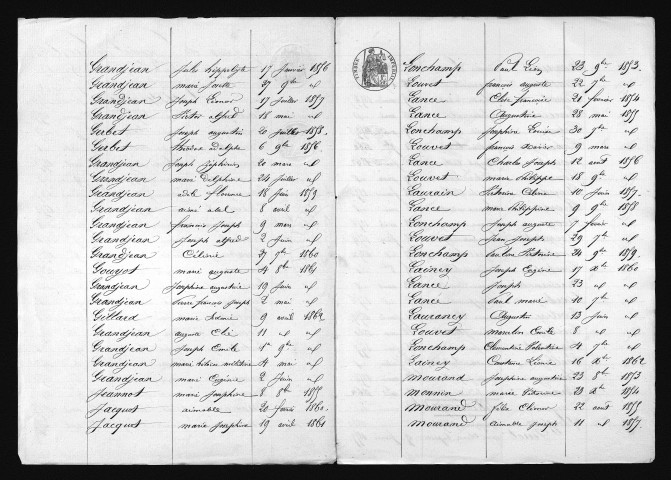 Grandjean Jules hippolyte 17 janvier 1856
Grandjean marie 27 9bre id
Grandjean Joseph 17 juillet 1857
Grandjean alfred 18 mai id
Gerbet Joseph augustin 20 juillet 1858
Gerbet adolphe 6 9bre 1856
Grandjean Joseph Zéphirin 20 mars id
Grandjean marie Delphine 24 juillet id
Grandjean adèle florence 18 Juin 1859
Grandjean aimé abel 8 avril id
Grandjean francois Joseph 9 mars id
Grandjean Joseph alfred 2 Juin id
Grandjean Célinie 27 7bre 1860
Gouyot marie auguste 4 8bre 1861
Grandjean Joséphine augustine 19 Juin id
Grandjean Pierre francois Joseph 2 mai id
Gillard marie 9 avril 1862
Grandjean auguste 11 id id
Grandjean Joseph Emile 1er 9bre id
Grandjean marie 4 mai id
Grandjean marie Eugénie 2 Juin id
Jeannot marie Joséphine 8 8bre
Jacquot aimable 20 février 1860
Jacquot marie Joséphine 19 avril 1861
Lonchamp Paul Léon 23 9bre 1853
Louvet francois auguste 22 7bre id
Lance francoise 21 février 1854
Lance Augustine 28 mai 1855
Lonchamp Joséphine Louise 30 7bre id
Louvet francois xavier 9 mars id
Lance Charles Joseph 12 août 1856
Louvet marie philippe 18 9bre id
Laurain 10 Juin 1857
Lance marie Philippine 9 9bre 1858
Lonchamp Joseph auguste 7 février id
Louvet Jean Joseph 29 7bre id
Lonchamp Pauline 24 9bre 1859
Lainey Joseph Eugène 17 Xbre 1860
Lance Joseph 23 id id
Lance Paul marie 10 7bre id
Laurancy Augustin 13 Juin id
Louvet Emile 8 id id
Lonchamp Clémentine 4 7bre id
Lainey Léonie 16 Xbre 1862
Mourand Joséphine augustine 23 8bre 1853
Monnin marie 23 Xbre 1854
Mourand 22 août 1855
Mourand Aimable Joseph 11 id 1857